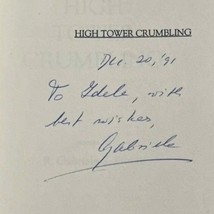 HIGH TOWER CRUMBLING
Dec. 20, '91
To Idele, with
best wishes,
Gabriele